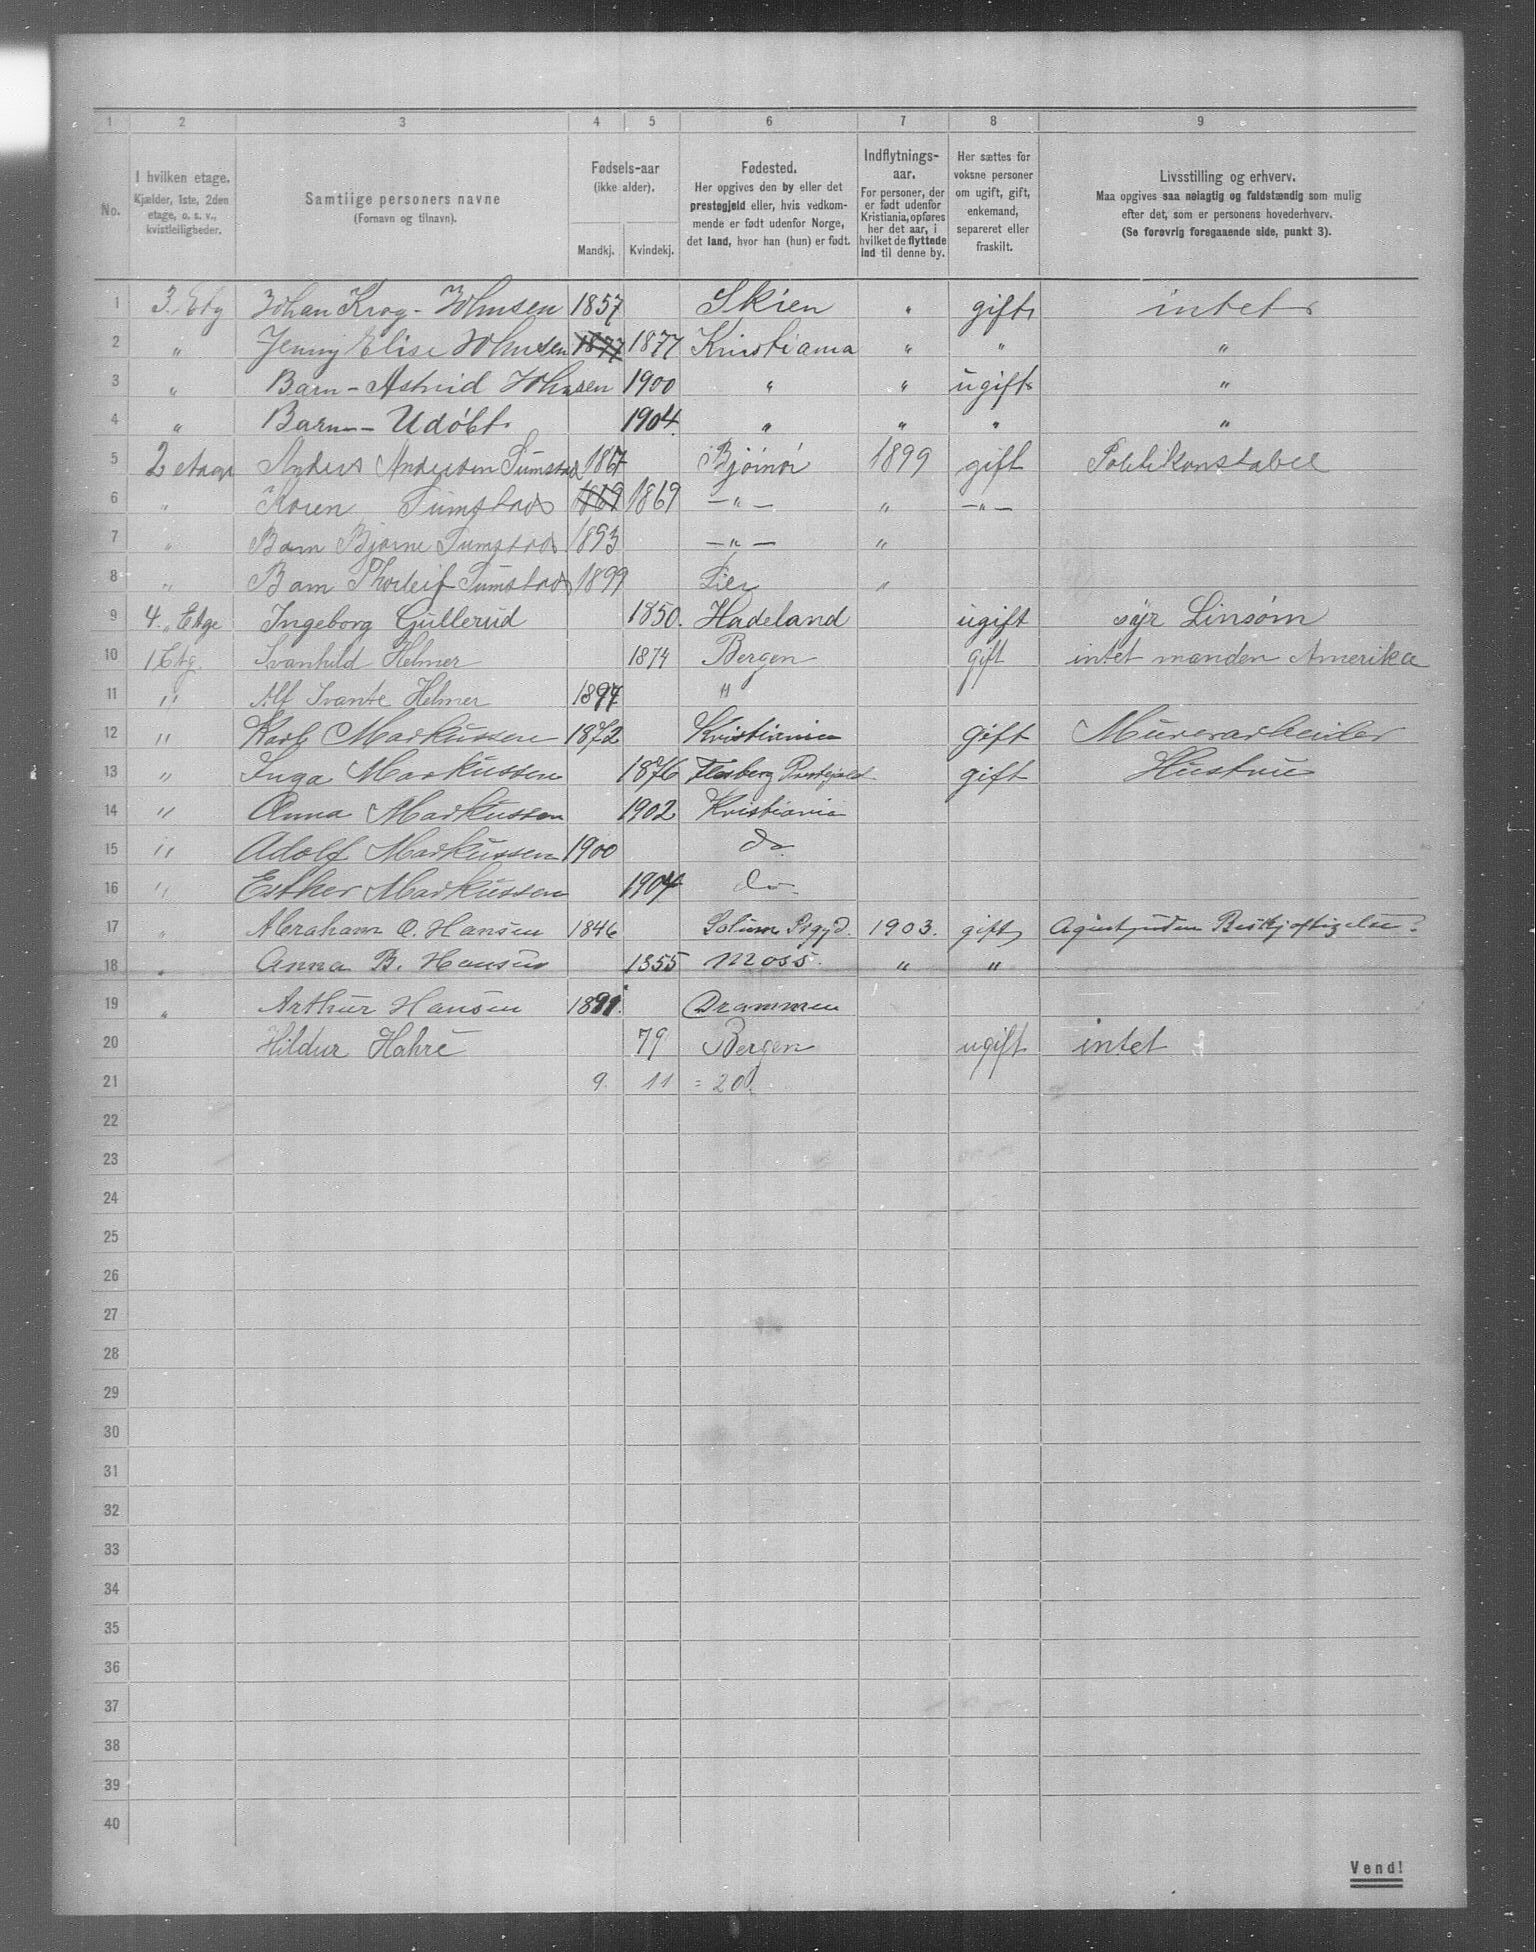 1 2 3 4 5 6 7 8 9
No.
I hvilken etage.
Kjælder, 1ste, 2den
etage, o. s. v.,
kvistleiligheder.
Samtlige personers navne
(Fornavn og tilnavn).
Fødsels-aar
(ikke alder).
Mandkj. Kvindekj.
Fødested.
Her opgives den by eller det
prestegjeld eller, hvis vedkom-
mende er født udenfor Norge,
det land, hvor han (hun) er født.
Indflytnings-
aar.
For personer, der
er født udenfor
Kristiania, opføres
her det aar, i
hvilket de flyttede
ind til denne by.
Her sættes for
voksne personer
om ugift, gift,
enkemand,
separeret eller
fraskilt.
Livsstilling og erhverv.
Maa opgives saa nøiagtig og fuldstændig som mulig
efter det, som er personens hovederhverv.
(Se forøvrig foregaaende side, punkt 3).
1 3. Etg Johan Krog - Johnsen 1857 Skien " gift intet
2 " Jenny Elise Johnsen 1877 1877 Kristiania " " "
3 " Barn - Astrid Johnsen 1900 " " ugift "
4 " Barn - Udøbt 1904 " " " "
5 2 etage Anders Andersen Tumstad 1867 Bjørnør 1899 gift Politikonstabel
6 " Karen Tumstad 1869 1869 - " - " - " -
7 " Barn Bjarne Tumstad 1893 - " - "
8 " Barn Thorleif Tumstad 1899 Lier "
9 4. Etge Ingeborg Gullerud 1850. Hadeland ugift syr Linsøm
10 1 Etg. Svanhild Helmer 1874 Bergen gift intet manden Amerika
11 " Alf Svante Helmer 1897 "
12 " Karl Markussen 1872 Kristiania gift Murerarbeider
13 " Inga Markussen 1876 Flesberg Prestgjeld gift Hustru
14 " Anna Markussen 1902 Kristiania
15 " Adolf Markussen 1900 do
16 " Esther Markussen 1904 do
17 " Abraham O. Hansen 1846 Solum Prgjd. 1903. gift
18 " Anna B. Hansen 1855 Moss. " "
19 " Arthur Hansen 1891. Drammen
20 Hildur Hahre 79 Bergen ugift intet
21 9. 11 = 20.
22
23
24
25
26
27
28
29
30
31
32
33
34
35
36
37
38
39
40
Vend!